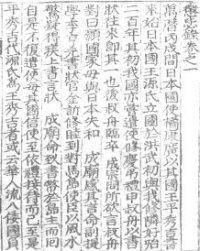 懲毖錄卷之一
萬曆丙戌間日本國使橘康廣以其國王平秀吉書
來始日本國王源氏立國於洪武初與我修隣好殆
二百年其初我國亦嘗遣使修慶弔禮申叔舟以書
狀往來即其一也後叔舟臨卒成宗問所欲言叔舟
對曰願國家毋與日本失和成廟感其言命副提
學李亨元書狀官金訢修睦到對馬島使臣以風水
驚疑得疾上書言狀成廟命致書幣於島主而回
自是不復遣使每其國信使至依禮接待而已至是
平秀吉代源氏爲王秀吉者或云華人流入倭國